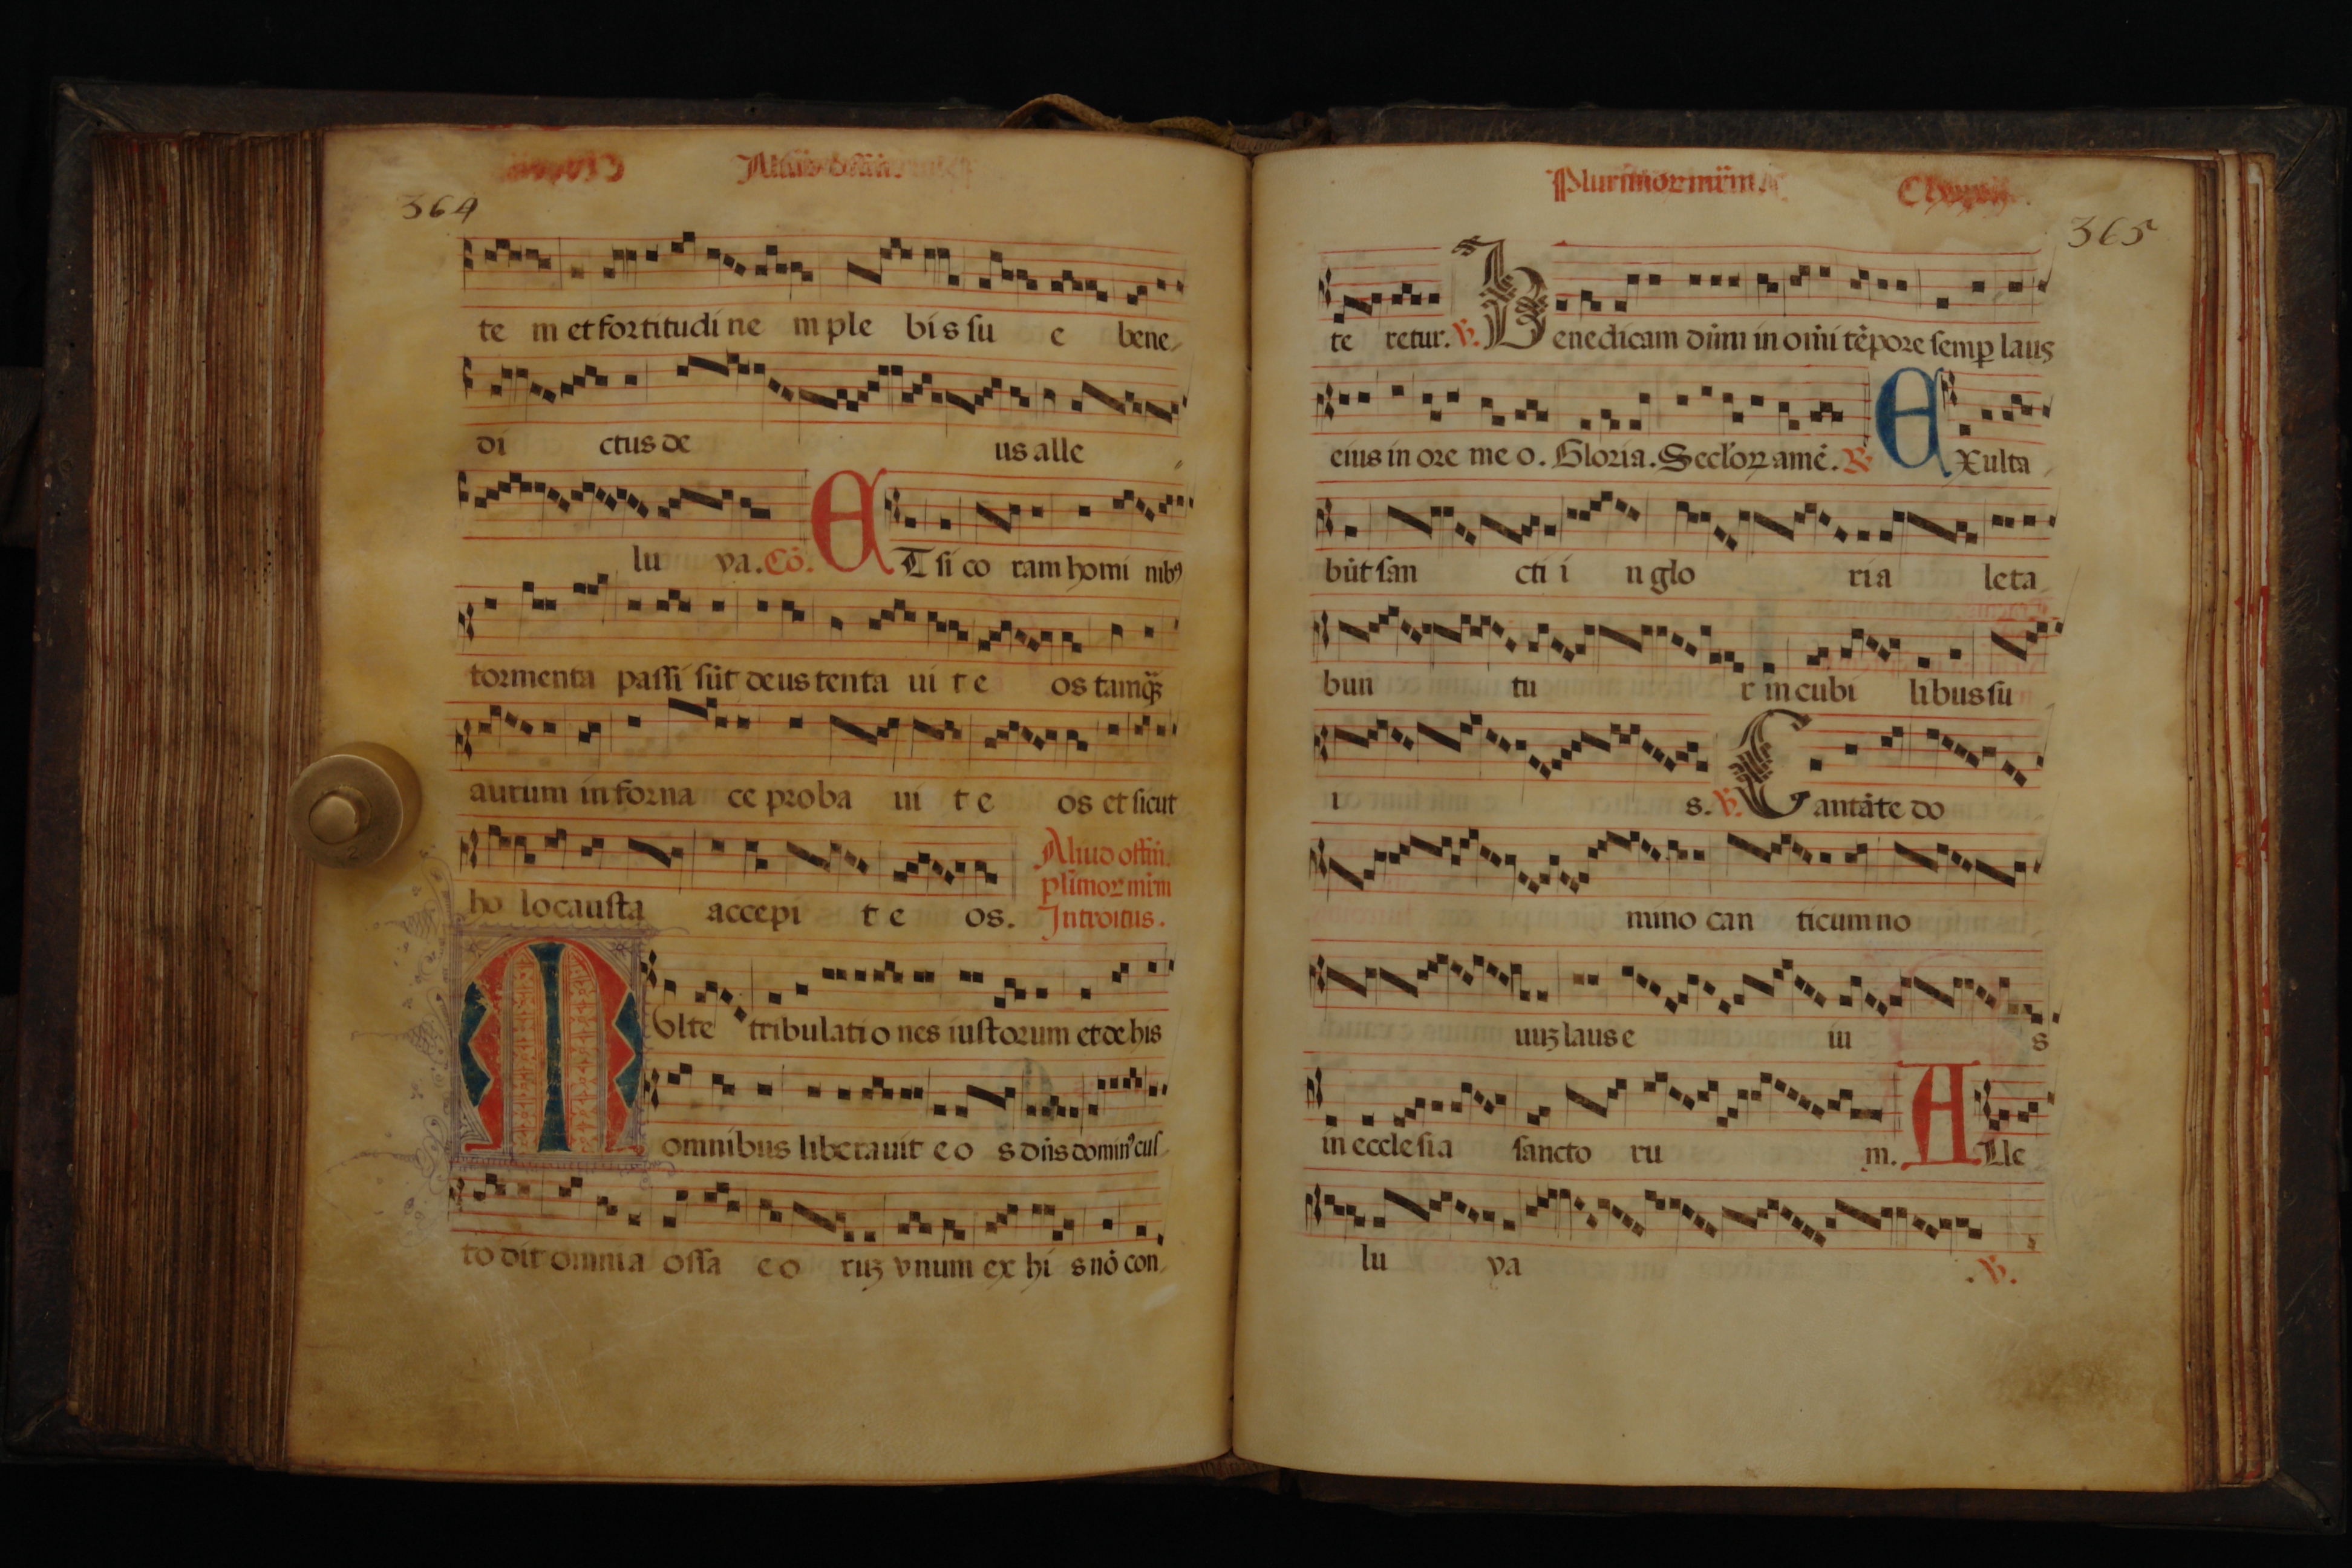 364
te m et fortitudi ne m ple bi s su e bene
di ctus de us alle
lu ya. Cō. ET si co ram homi nibꝰ
tormenta passi sūt deus tenta ui t e os tamqꝫ
aurum in forna ce proba ui t e os et sicut
ho locausta accepi t e os. Aliud offm̄.
plīmor mr̄m
Introitus.
Multe tribulati o nes iustorum et de his
omnibus liberauit e o s dn̄s dominꝰ cus
to dit omnia ossa e o ruꝫ vnum ex hi s nō con
Plurimoꝝ mr̄m.
365
te retur. ℣. Benedicam dn̄m in om̄i tēpore semp laus
eius in ore me o. Gloria. Seclo̧ꝝ amē. ℟. EXulta
būt san cti i n glo ria leta
bun tu r in cubi libus su
i s. ℣. Cantāte do
mino can ticum no
uuꝫ laus e iu s
in ecclesia sancto ru m. ALle
lu ya . ℣.